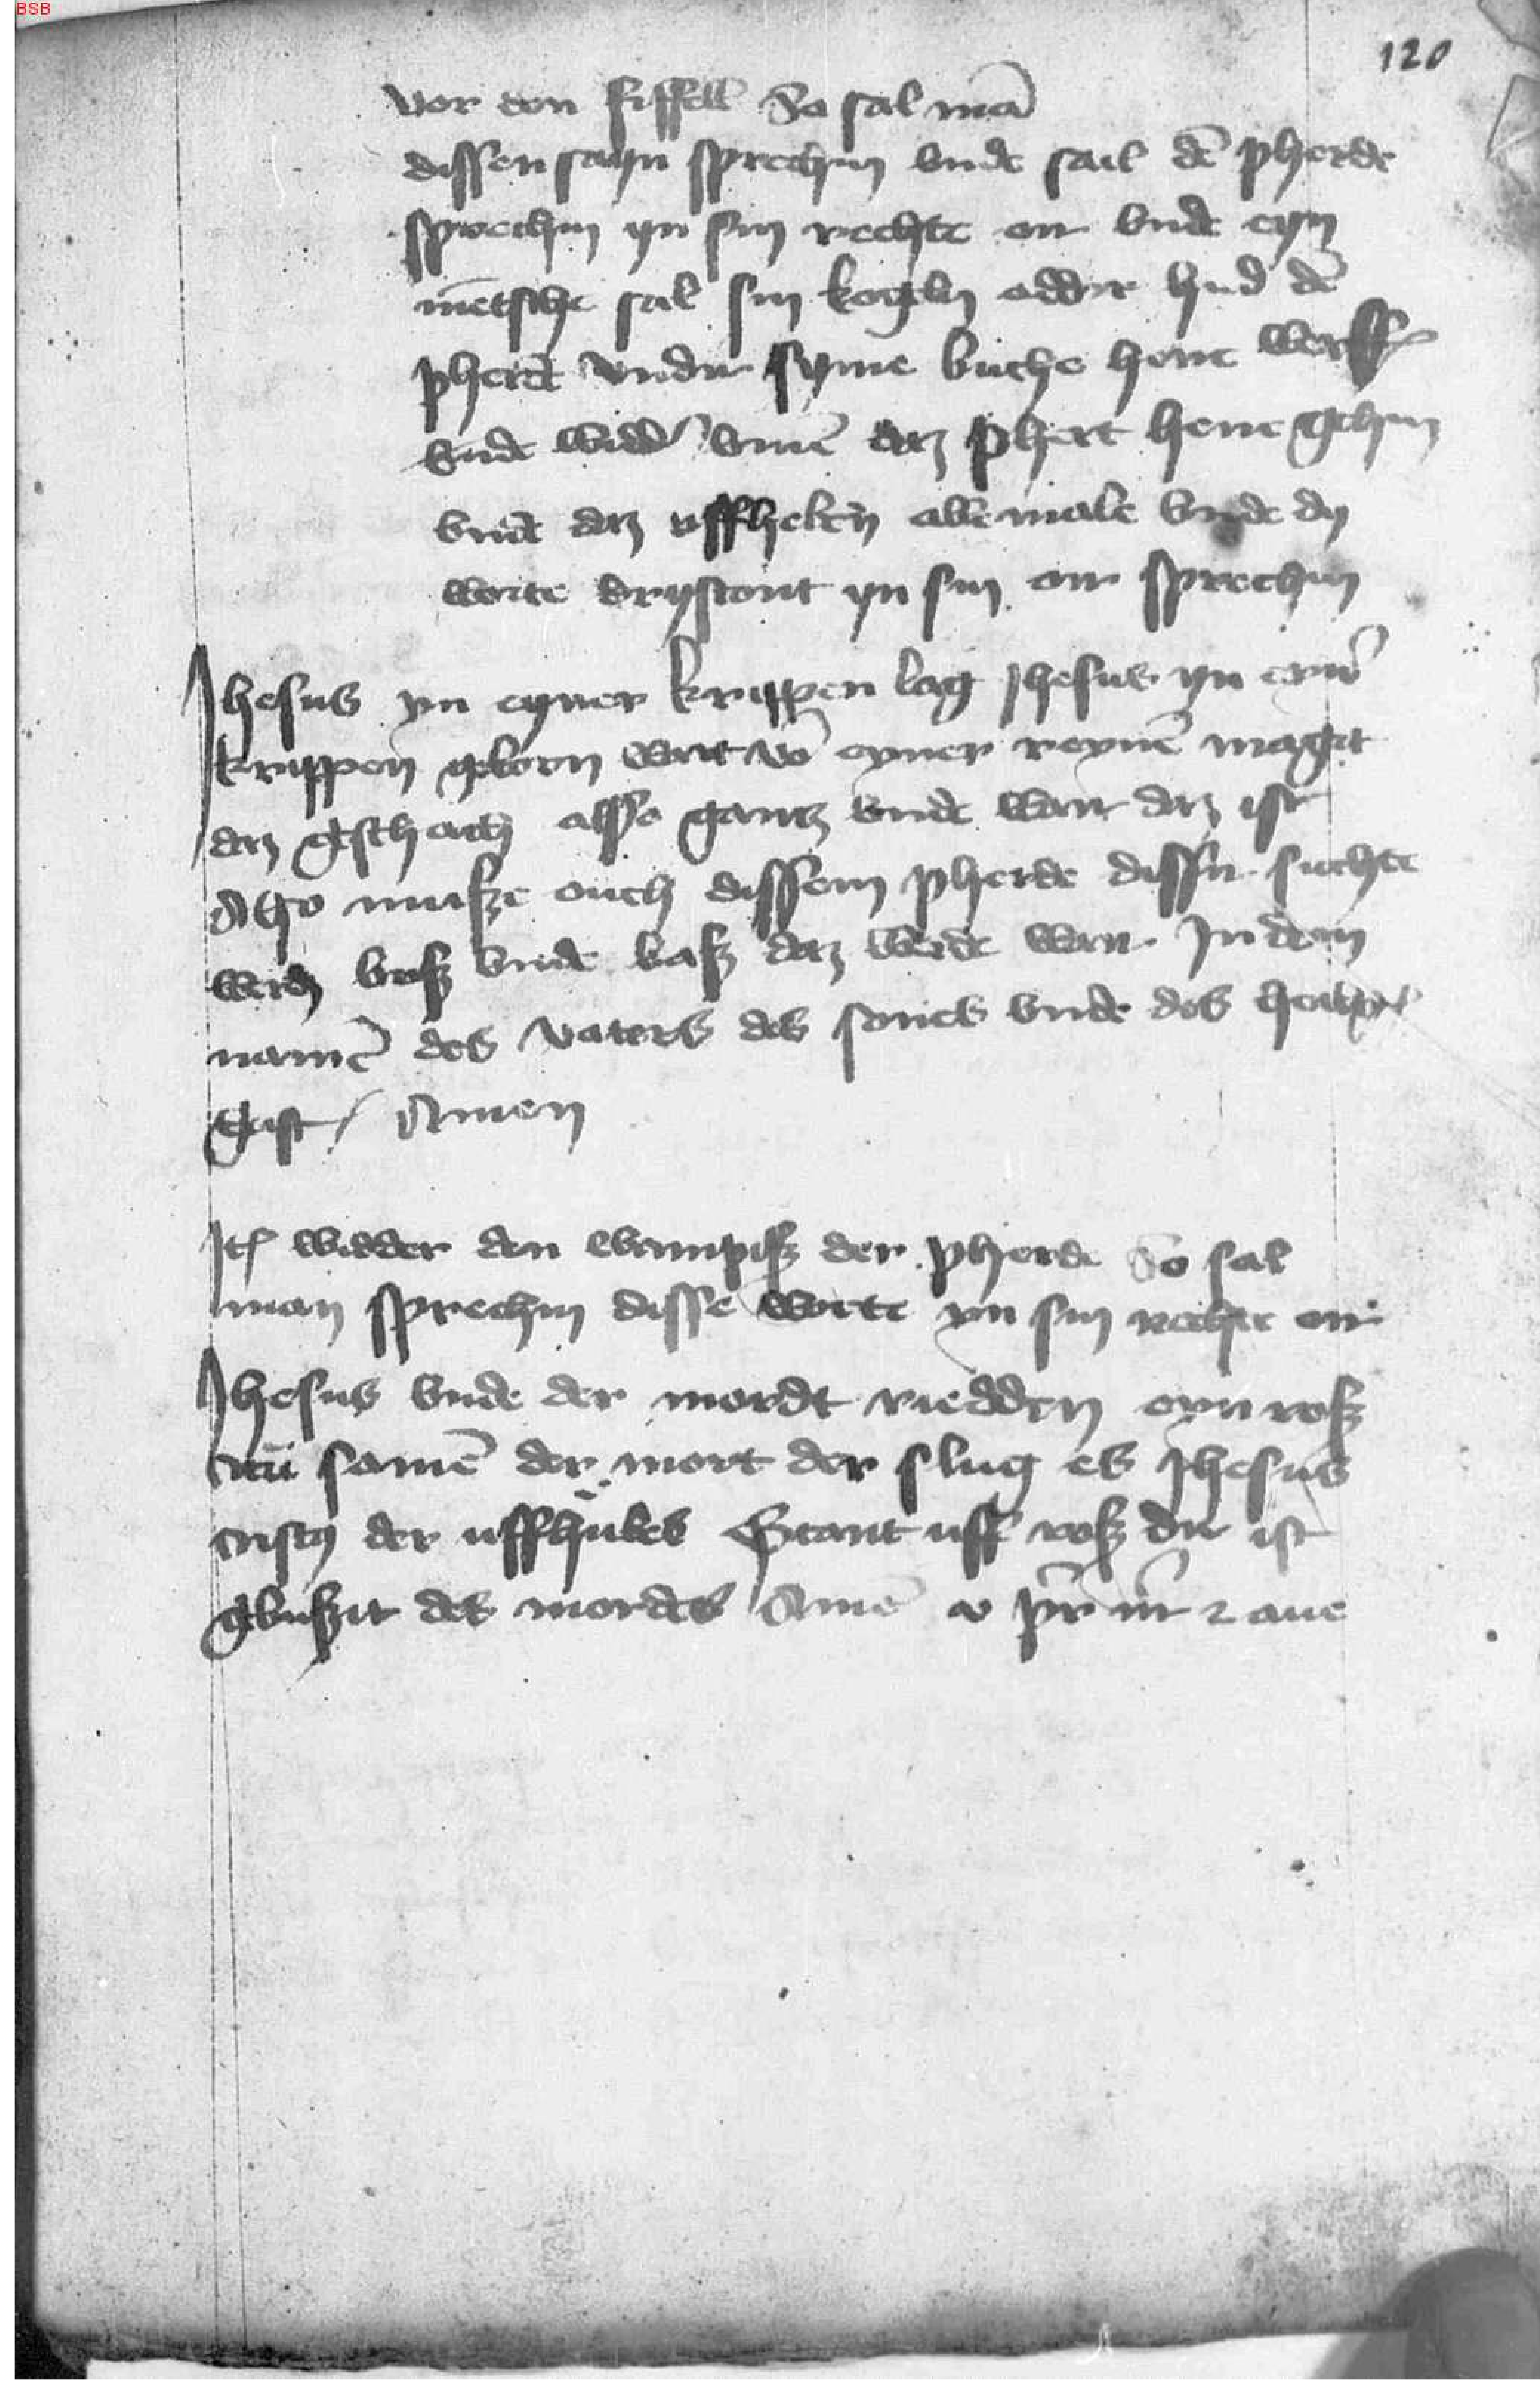 BSB
120
vor den fiffell So sal mā
dissen sayn sprechin vnde sail dē pherde
sprechin yn sin rechte orr vnde eyn
mētsche sal sin kogeln addir hud dē
pherdt vndir syme buche hene werff
vnde widd vmē daz phert hene gehin
vnde daz uffhebin abbe male vnde dy
worte drystont yn sin orr sprechin
Ihesus yn eyner krippen lag Jhesus yn eynr
krippen geborn wart vō eyner reynē magit
daz geschach alsso gantz vnde war daz ist
Also musze ouch dissem pherde dissir suchte
werdin busz vnde basz daz werde war In dem
namē des vaters des sones vnde des heilgen
geist Amen
Itē widder den wampisz der pherde So sal
man sprechin disse worte yn sin rechte orr
Ihesus vnde der mordt riedden eyn rosz
zcū samē der mort der slug es Jhesus
cristy der uffhubes Stant uff rosz dir ist
gebuszit des mordes Amē v pr̄ nr̄ 2 aue